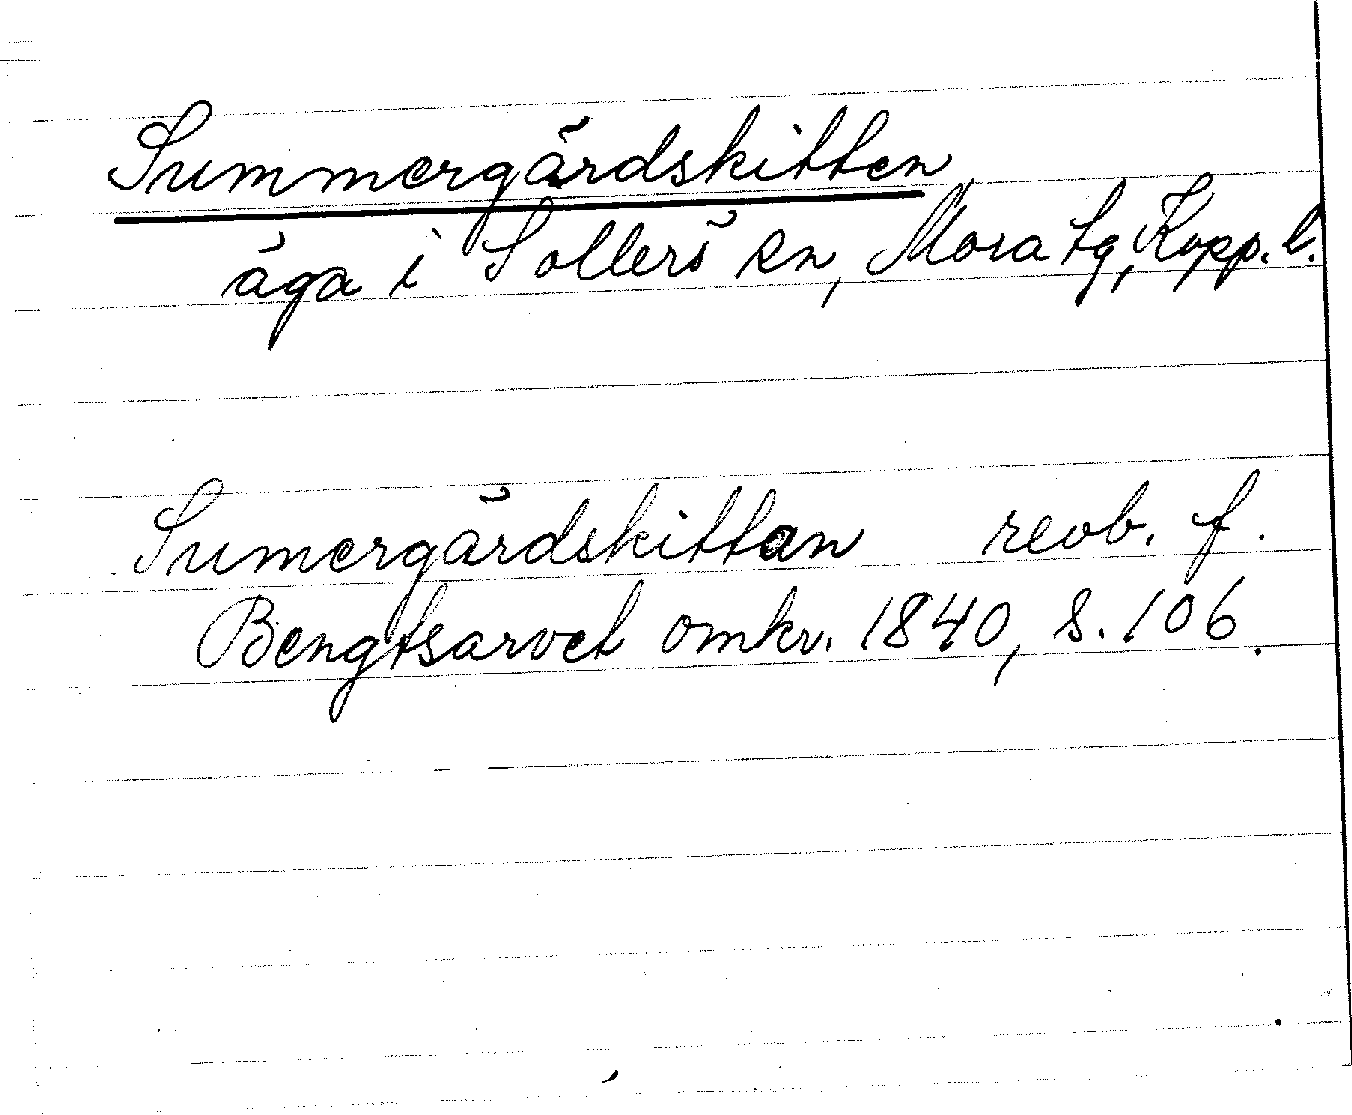 Summergårdskitten
äga i Sollerö sn, Mora tg, Kopp. l.
Sumergårdskittan revb. f.
Bengtsarvet omkr. 1840, s. 106.